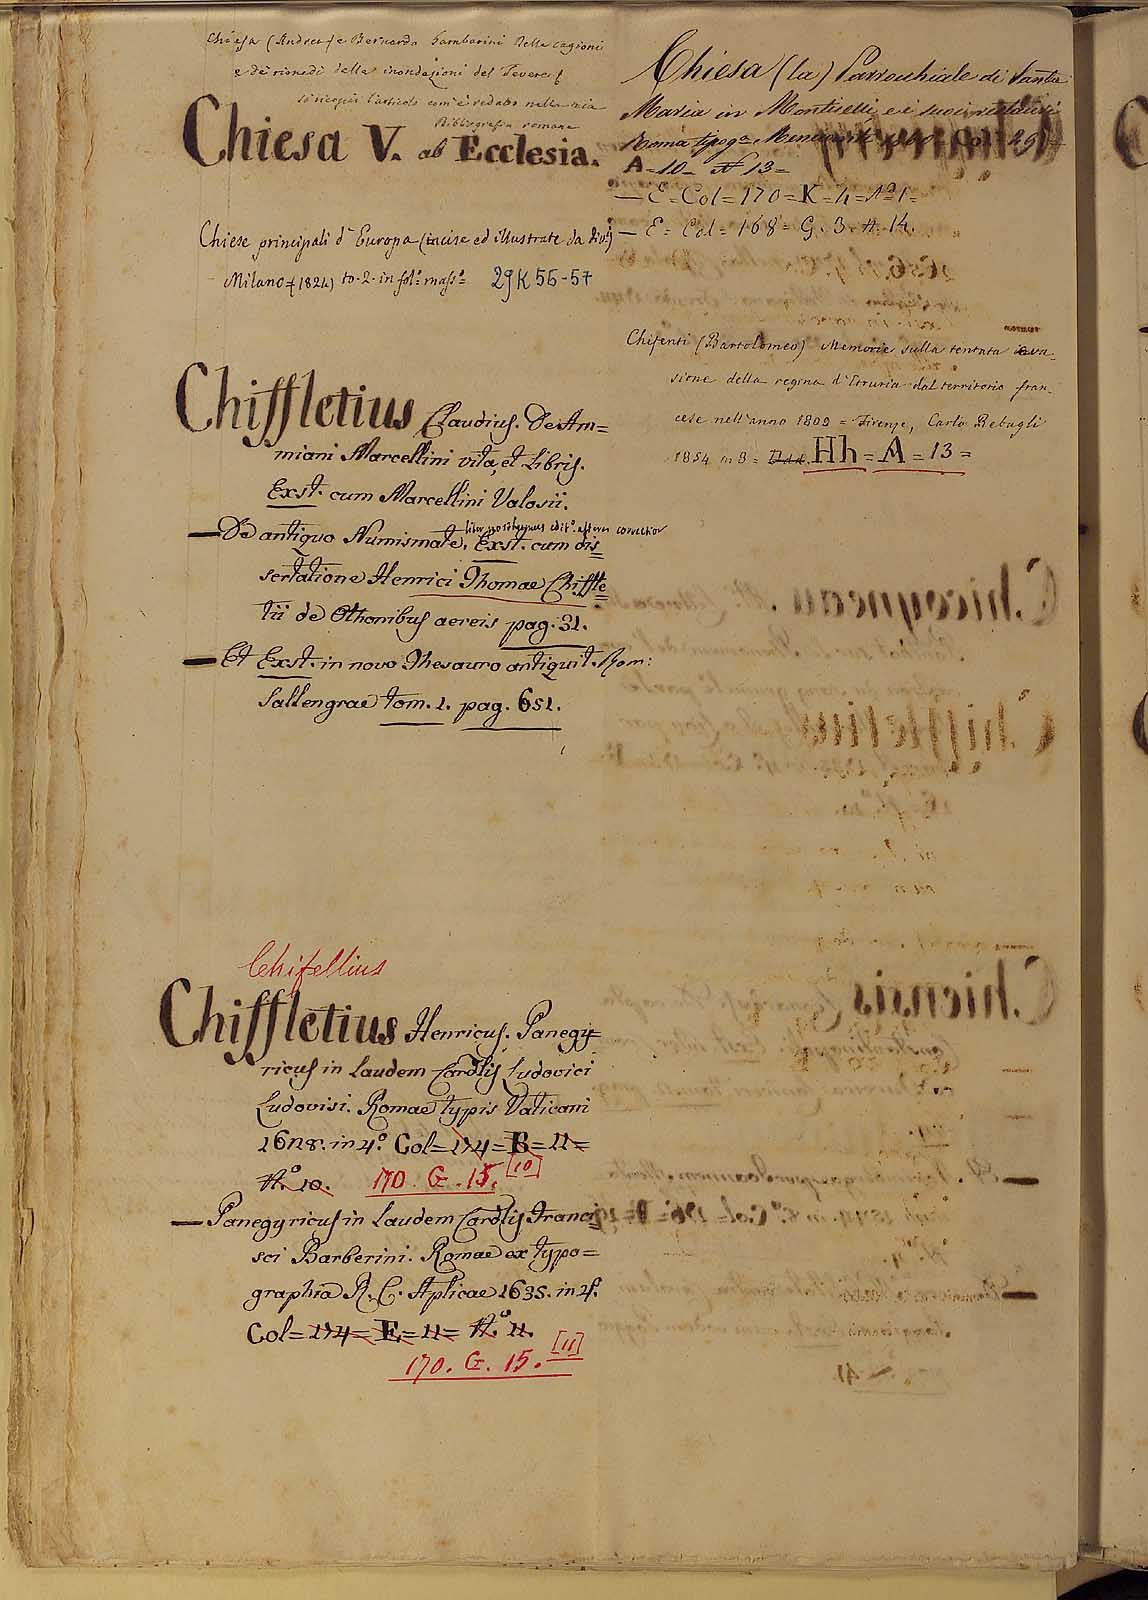 Chiesa (Andrea) e Bernardo Gambarini Delle cagioni
e de' rimedi delle inondazioni del Tevere
l'articolo com'è redatto nella mia
Bibliografia romana
Chiesa V. ab Ecclesia.
Chiese principali d'Europa (incise ed illustrate da div.i)
Milano (1824) to. 2. in fol.o mass.o 29 K 56-57
Chiffletius Claudius. De Am=
miani Marcellini vita, et Libris.
Exst. cum Marcellini Valosii.
— De antiquo Numismate, liber posthumus Exst. cum dis
sertatione Henrici Thomae Chiffle
tii de Othonibus aereis pag. 31.
— Et Exst. in novo Thesauro antiquit. Rom:
Sallengrae tom. 1. pag. 651.
Chifellius
Chiffletius Henricus. Panegy=
ricus in Laudem Cardlis Ludovici
Ludovisi. Romae typis Vaticani
1628. in 4.o Col= 174= B= 11=
N.o 10. 170. G. 15. [10]
— Panegyricus in Laudem Cardlis Franci
sci Barberini. Romae ex typo=
graphia R. C. Aplicae 1635. in 4.
Col= 174= E= 11= N.o 11.
170. G. 15. [11]
Chiesa (la) Parrochiale di Santa
Maria in Monticelli e i suoi restauri
Roma tipog.a Menicanti
A= 10= N 13=
— E= Col= 170= K= 4= N.o 1=
— E= Col= 168= G. 3. N. 14.
Chifenti (Bartolomeo) Memorie sulla tentata eva-
sione della regina d'Etruria dal territorio fran-
cese nell'anno 1809 = Firenze, Carlo Rebagli
1854 in 8= Ddd. Hh= A= 13=